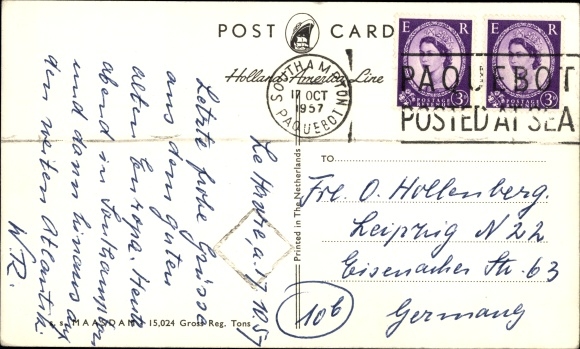 POST CARD
Holland-America Line
SOUTHAMPTON
17 OCT
1957
PAQUEBOT
E R
POSTAGE
3D
E R
POSTAGE
3D
PAQUEBOT
POSTED AT SEA
Le Havre, d. 17.10.57
Letzte frohe Grüsse
aus dem guten
alten Europa. Heute
abend in Southampton
und dann hinaus auf
den weiten Atlantik.
W.R.
Printed in The Netherlands
TO
Frl. O. Hollenberg.
Leipzig N 22
Eisenacher Str. 63
10b
Germany
s.s. MAASDAM - 15,024 Gross Reg. Tons